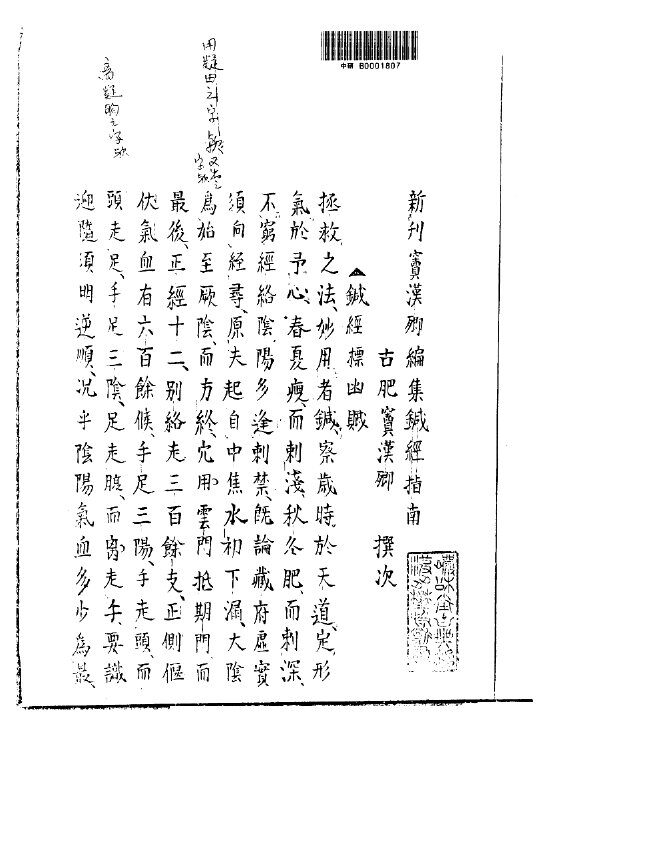 中研 B0001807
新刊竇漢卿編集鍼經指南
古肥竇漢卿 撰次
鍼經標幽賦
拯救之法、妙用者鍼、察歲時於天道、定形
氣於予心、春夏瘦、而刺淺、秋冬肥、而刺深、
不窮經絡陰陽多逢刺禁、既論藏府虛實
須向經尋、原夫起自中焦水初下漏、大陰
爲始至厥陰、而方終、穴用雲門抵期門而
最後、正經十二、別絡走三百餘支、正側偃
伏氣血有六百餘候、手足三陽、手走頭、而
頭走足、手足三陰、足走腹、而胷走手、要識
迎隨須明逆順、况乎陰陽氣血多少爲最、